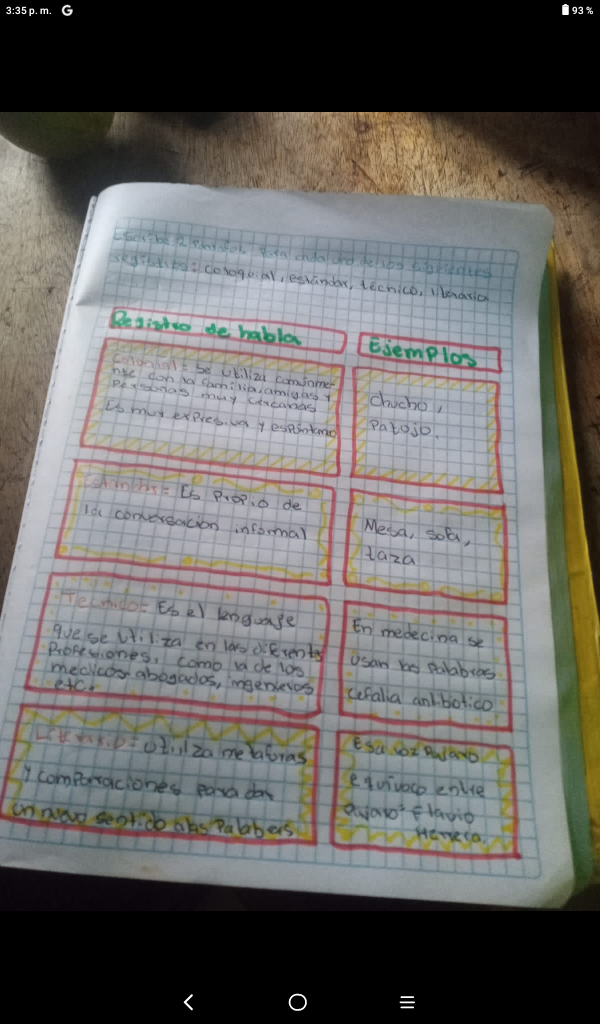 3:35 p. m. G 93 %
Escribe 2 para cada uno de los siguientes
registros: coloquial, estándar, técnico, literaria
Registro de habla
Ejemplos
se utiliza comúnme-
nte con la familia, amigas y
Personas muy cercanas
Es muy expresiva y espontaneo
Chucho,
Patojo.
Estandar= Es Propio de
la conversación informal
Mesa, sofa,
taza
Tecnico= Es el lenguaje
que se utiliza en las diferents
Profesiones, como la de los
medicos abogados, ingenieros
etc.
En medecina se
usan las Palabras
cefalia antibotico
Literario= Utiliza metaforas
y comparaciones para dar
un nuevo sentido a las Palabers
Esa voz Pajaro
equivoco entre
Pajaro" Flavio
Herrera.